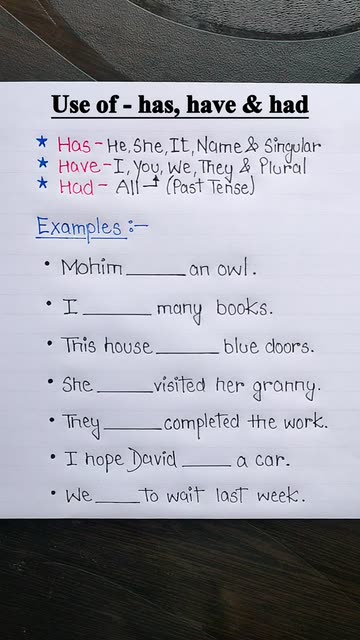 Use of - has, have & had
★ Has - He, She, It, Name & Singular
★ Have - I, You, We, They & Plural
★ Had - All (Past Tense)
Examples :-
• Mohim ______ an owl.
• I ______ many books.
• This house ______ blue doors.
• She ______ visited her granny.
• They ______ completed the work.
• I hope David _____ a car.
• We _____ to wait last week.